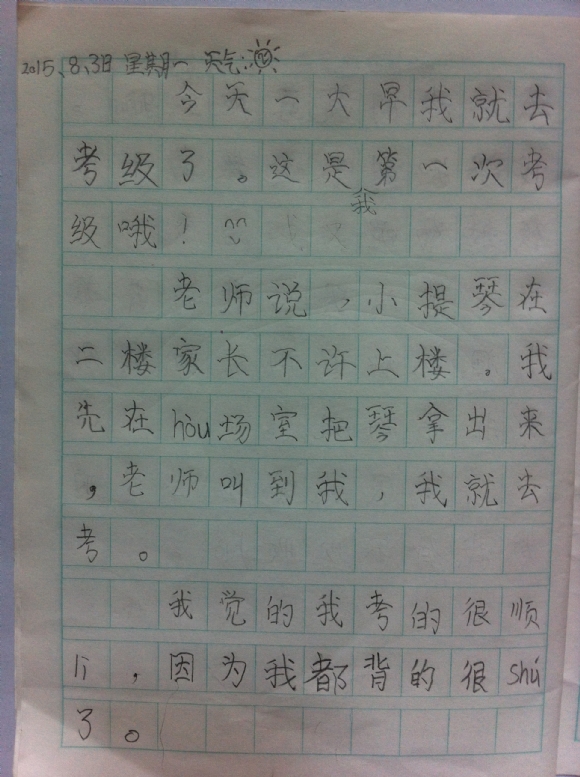 2015、8、3日 星期一 天气:
今天一大早我就去
考级了。这是我第一次考
级哦!
老师说,小提琴在
二楼家长不许上楼。我
先在hòu场室把琴拿出来
,老师叫到我,我就去
考。
我觉的我考的很顺
lì,因为我都背的很shú
了。